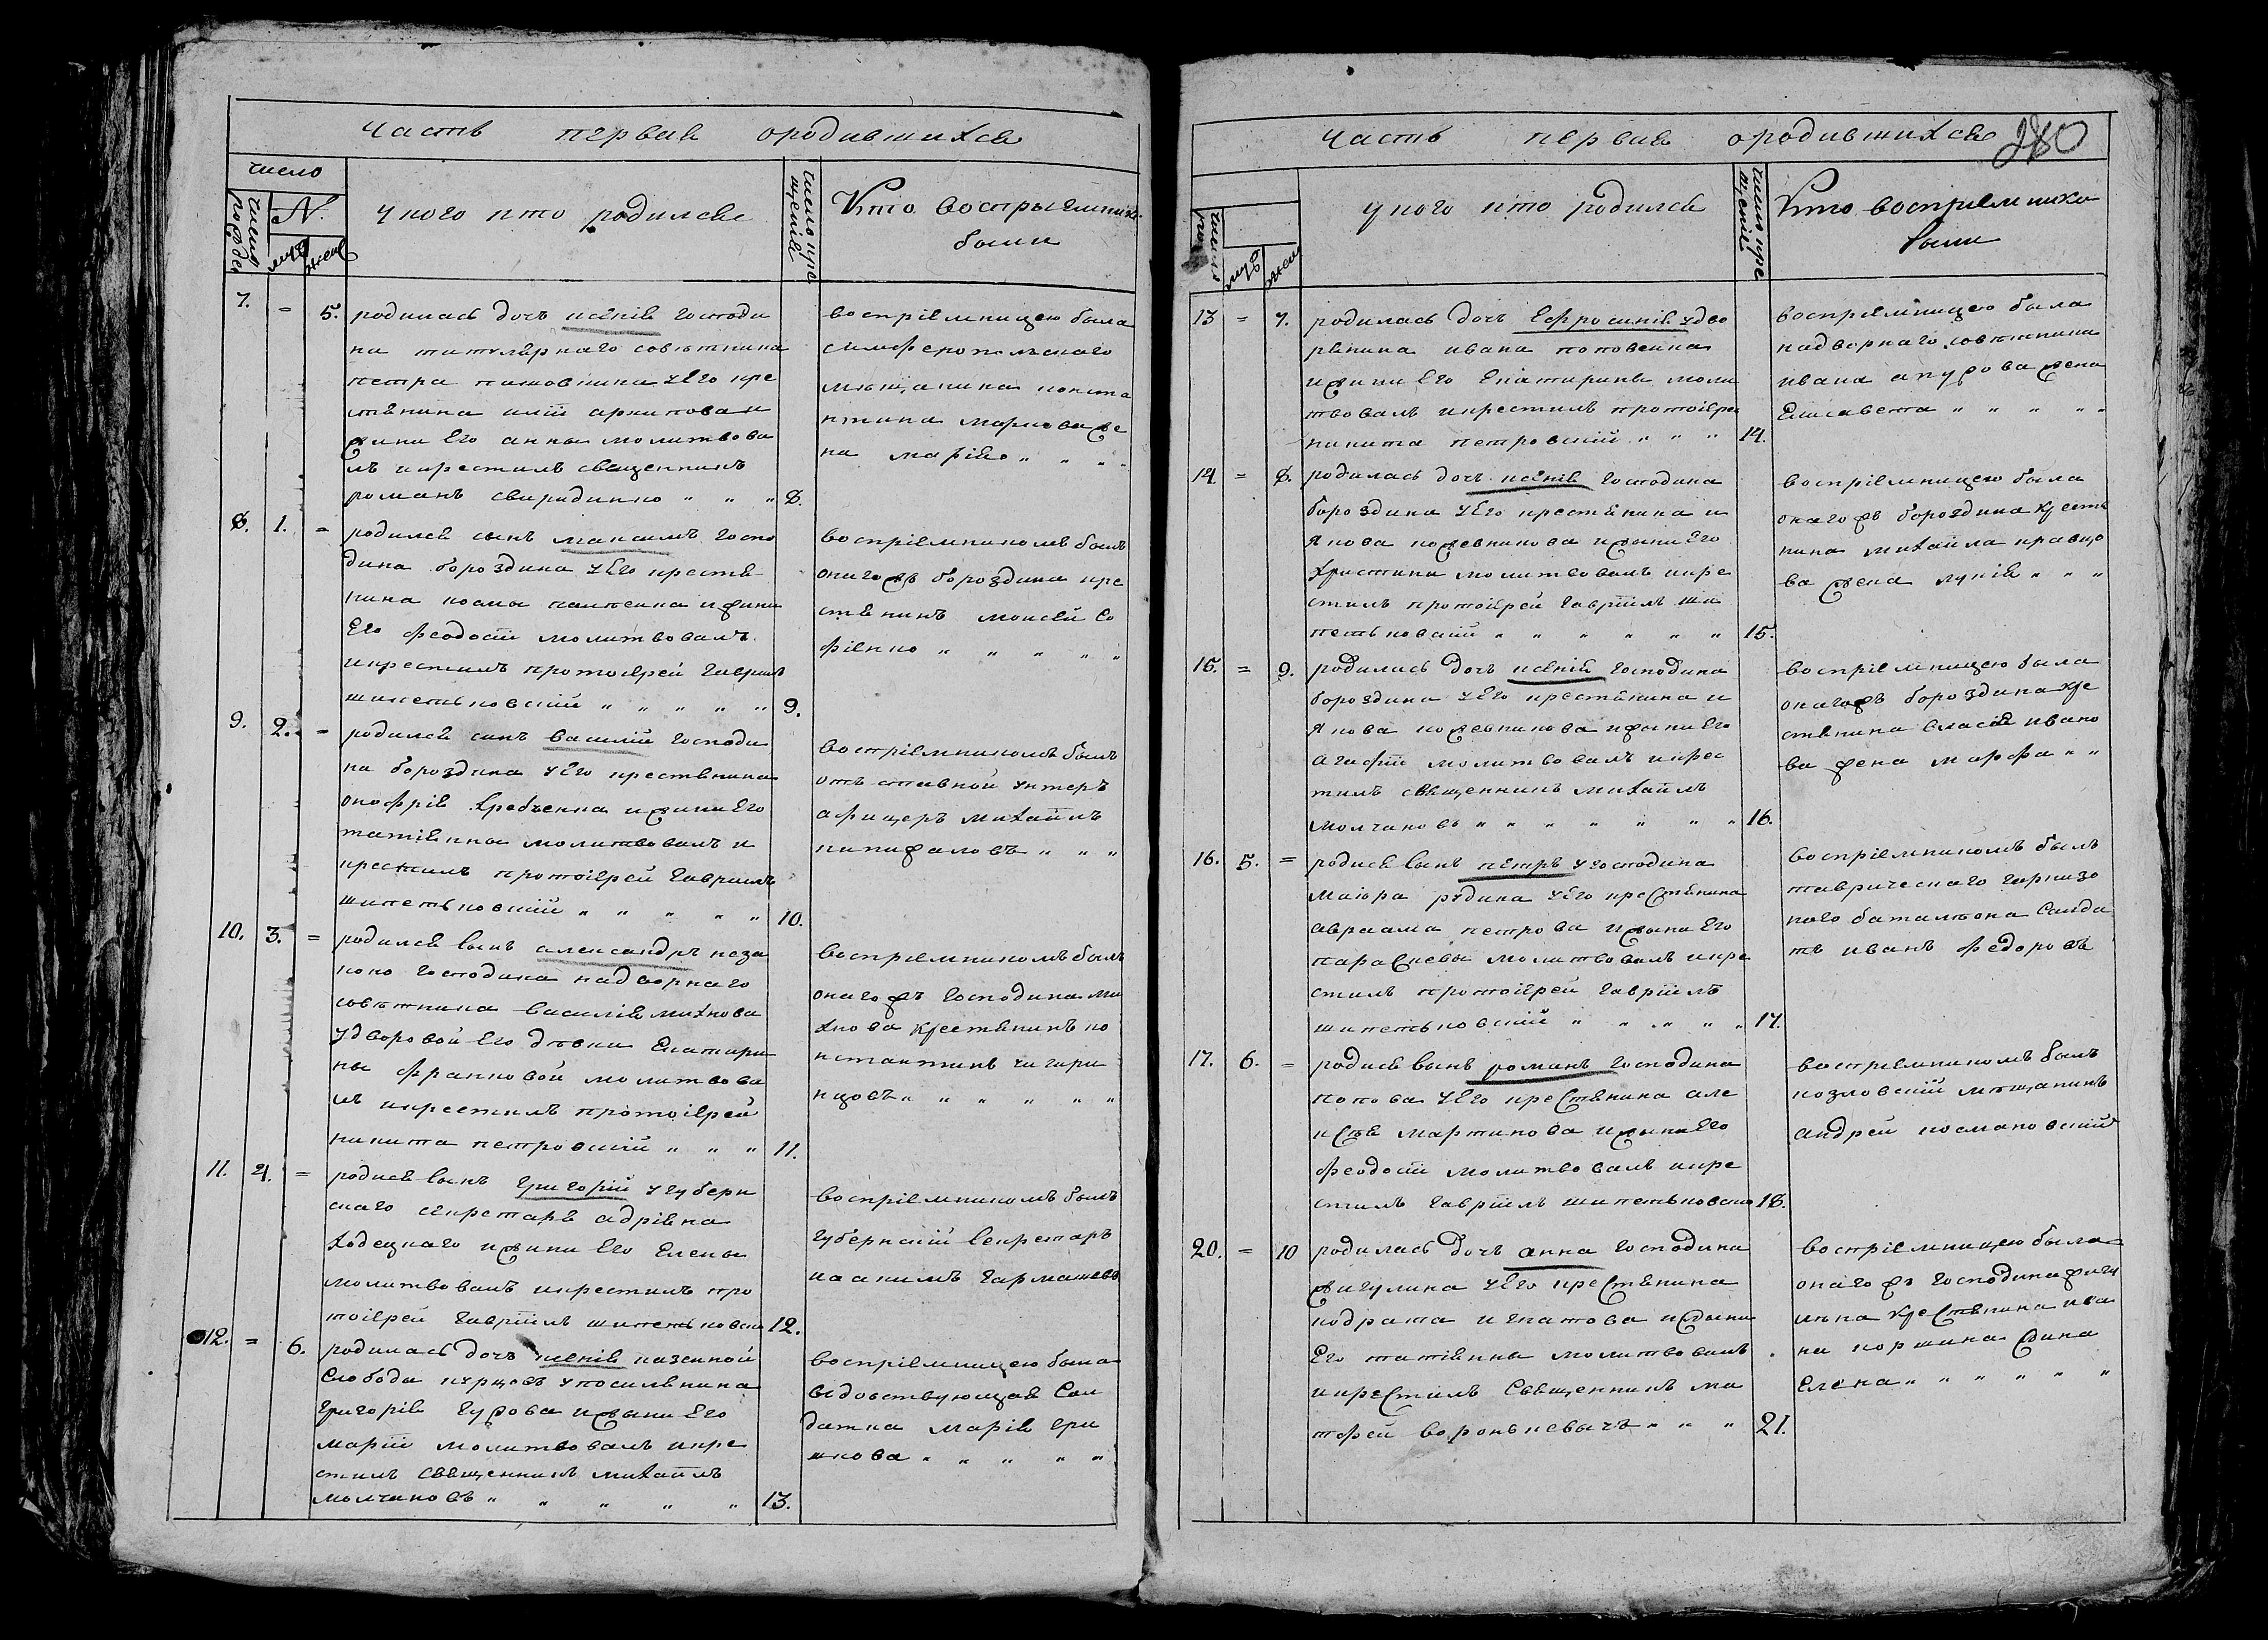 часть первая ородившихся
число
число рожде
N.
муж
жен
у кого кто родился
число кре щенія
Кто восприемники
были
7. = 5. родилась дочь ксенія господи
на титулярнаго советника
петра у Его кре
стянина иліи архипова и
жини Его анны молитвова
лъ икрестилъ священникъ
романъ свиридинко " " " 8.
восприемницею была
симферопольскаго
мещанина конста
нтина маркова же
на марія " " "
8. 1. = родился сынъ максимъ госпо
дина бороздина у Его крестя
нина космы пантенка ижини
Его феодосіи молитвовалъ
икрестилъ протоіерей гавріилъ
шипетьковскій " " " " " 9.
восприемникомъ былъ
онагожъ бороздина кре
стянинъ моисей со
фіенко " " " " "
9. 2. = родился сынъ василій господи
на бороздина у Его крестянина
онофрія хребченка ижини Его
татіянны молитвовалъ и
крестилъ протоіерей гавріилъ
шипетьковскій " " " " " 10.
восприемникомъ былъ
отъ ставной унтеръ
афицеръ михаилъ
никифаловъ " " "
10. 3. = родился сынъ александръ неза
коно господина надворнаго
советника василія михнова
удворовой Его девки Екатири
ны франковой молитвова
лъ икрестилъ протоіерей
никита петровскій " " " 11.
восприемникомъ былъ
онагожъ господина ми
хнова крестянинъ ко
нстантинъ чигири
нцовъ " " " " " "
11. 4. = родися сынъ григорій угуберн
скаго секретаря адріяна
ходецкаго ижини Его Елены
молитвовалъ икрестилъ про
тоіерей гавріилъ шипетьковски 12.
восприемникомъ былъ
губернскій секретарь
иоакимъ гармашевъ
12. = 6. родилась дочь ксенія казенной
слободи курцовъ упосилянина
григорія гурова ижыни Его
маріи молитвовалъ икре
стилъ священникъ михаилъ
молчановъ " " " " " 13.
восприемницею была
вдовствующая сол
датка марія гри
шкова " " " " "
часть первая ородившихся
280
число
муж
жен
у кого кто родился
число кре щеніе
Кто восприемники
были
13 = 7. родилась дочь Ефросинія удво
рянина ивана поповенка
ижини Его Екатирины моли
твовалъ икрестилъ протоіере
никита петровскій " " " 14.
восприемницею была
надворнаго советника
ивана апурова жена
Елисавета " " " " "
14 = 8. родилась дочь ксенія господина
бороздина у Его крестянина и
якова кожевникова ижыни Его
христины молитвовалъ икре
стилъ протоіерей гавріилъ ши
петьковскій " " " " " " 15.
восприемницею была
онагожъ бороздина кресть
нина михаила кравцо
ва жена лукія " " "
15. = 9. родилась дочь ксенія господина
бороздина у Его крестянина и
якова кожевникова ижыни Его
агафіи молитвовалъ икрес
тилъ священникъ михаилъ
молчановъ " " " " " " " 16.
восприемницею была
онагожъ бороздина кре
стянина власія ивано
ва жена марфа " "
16. 5. = родися сынъ петръ угосподина
маіора рудина у Его крестянина
авраама петрова ижына Его
парасневы молитвовалъ икре
стилъ протоіерей гавріилъ
шипетьковскій " " " " " 17.
восприемникомъ былъ
таврическаго гарнизо
ного баталіона салда
тъ иванъ федоровъ
17. 6. = родися сынъ романъ господина
попова у Его крестянина але
ксѣя мартинова ижына Его
феодосіи молитвовалъ икре
стилъ гавріилъ шипетьковски 18.
восприемникомъ былъ
козловскій мещанинъ
андрей космановскій
20. = 10 родилась дочь анна господина
жигулина у Его крестянина
кодрата игнатова ижыни
Его татіянны молитвовалъ
икрестилъ священникъ ма
тфей воронкевычъ " " " 21.
восприемницею была
онагожъ господина жигу
лина крестянина ива
на коршина жина
Елена " " " " " "